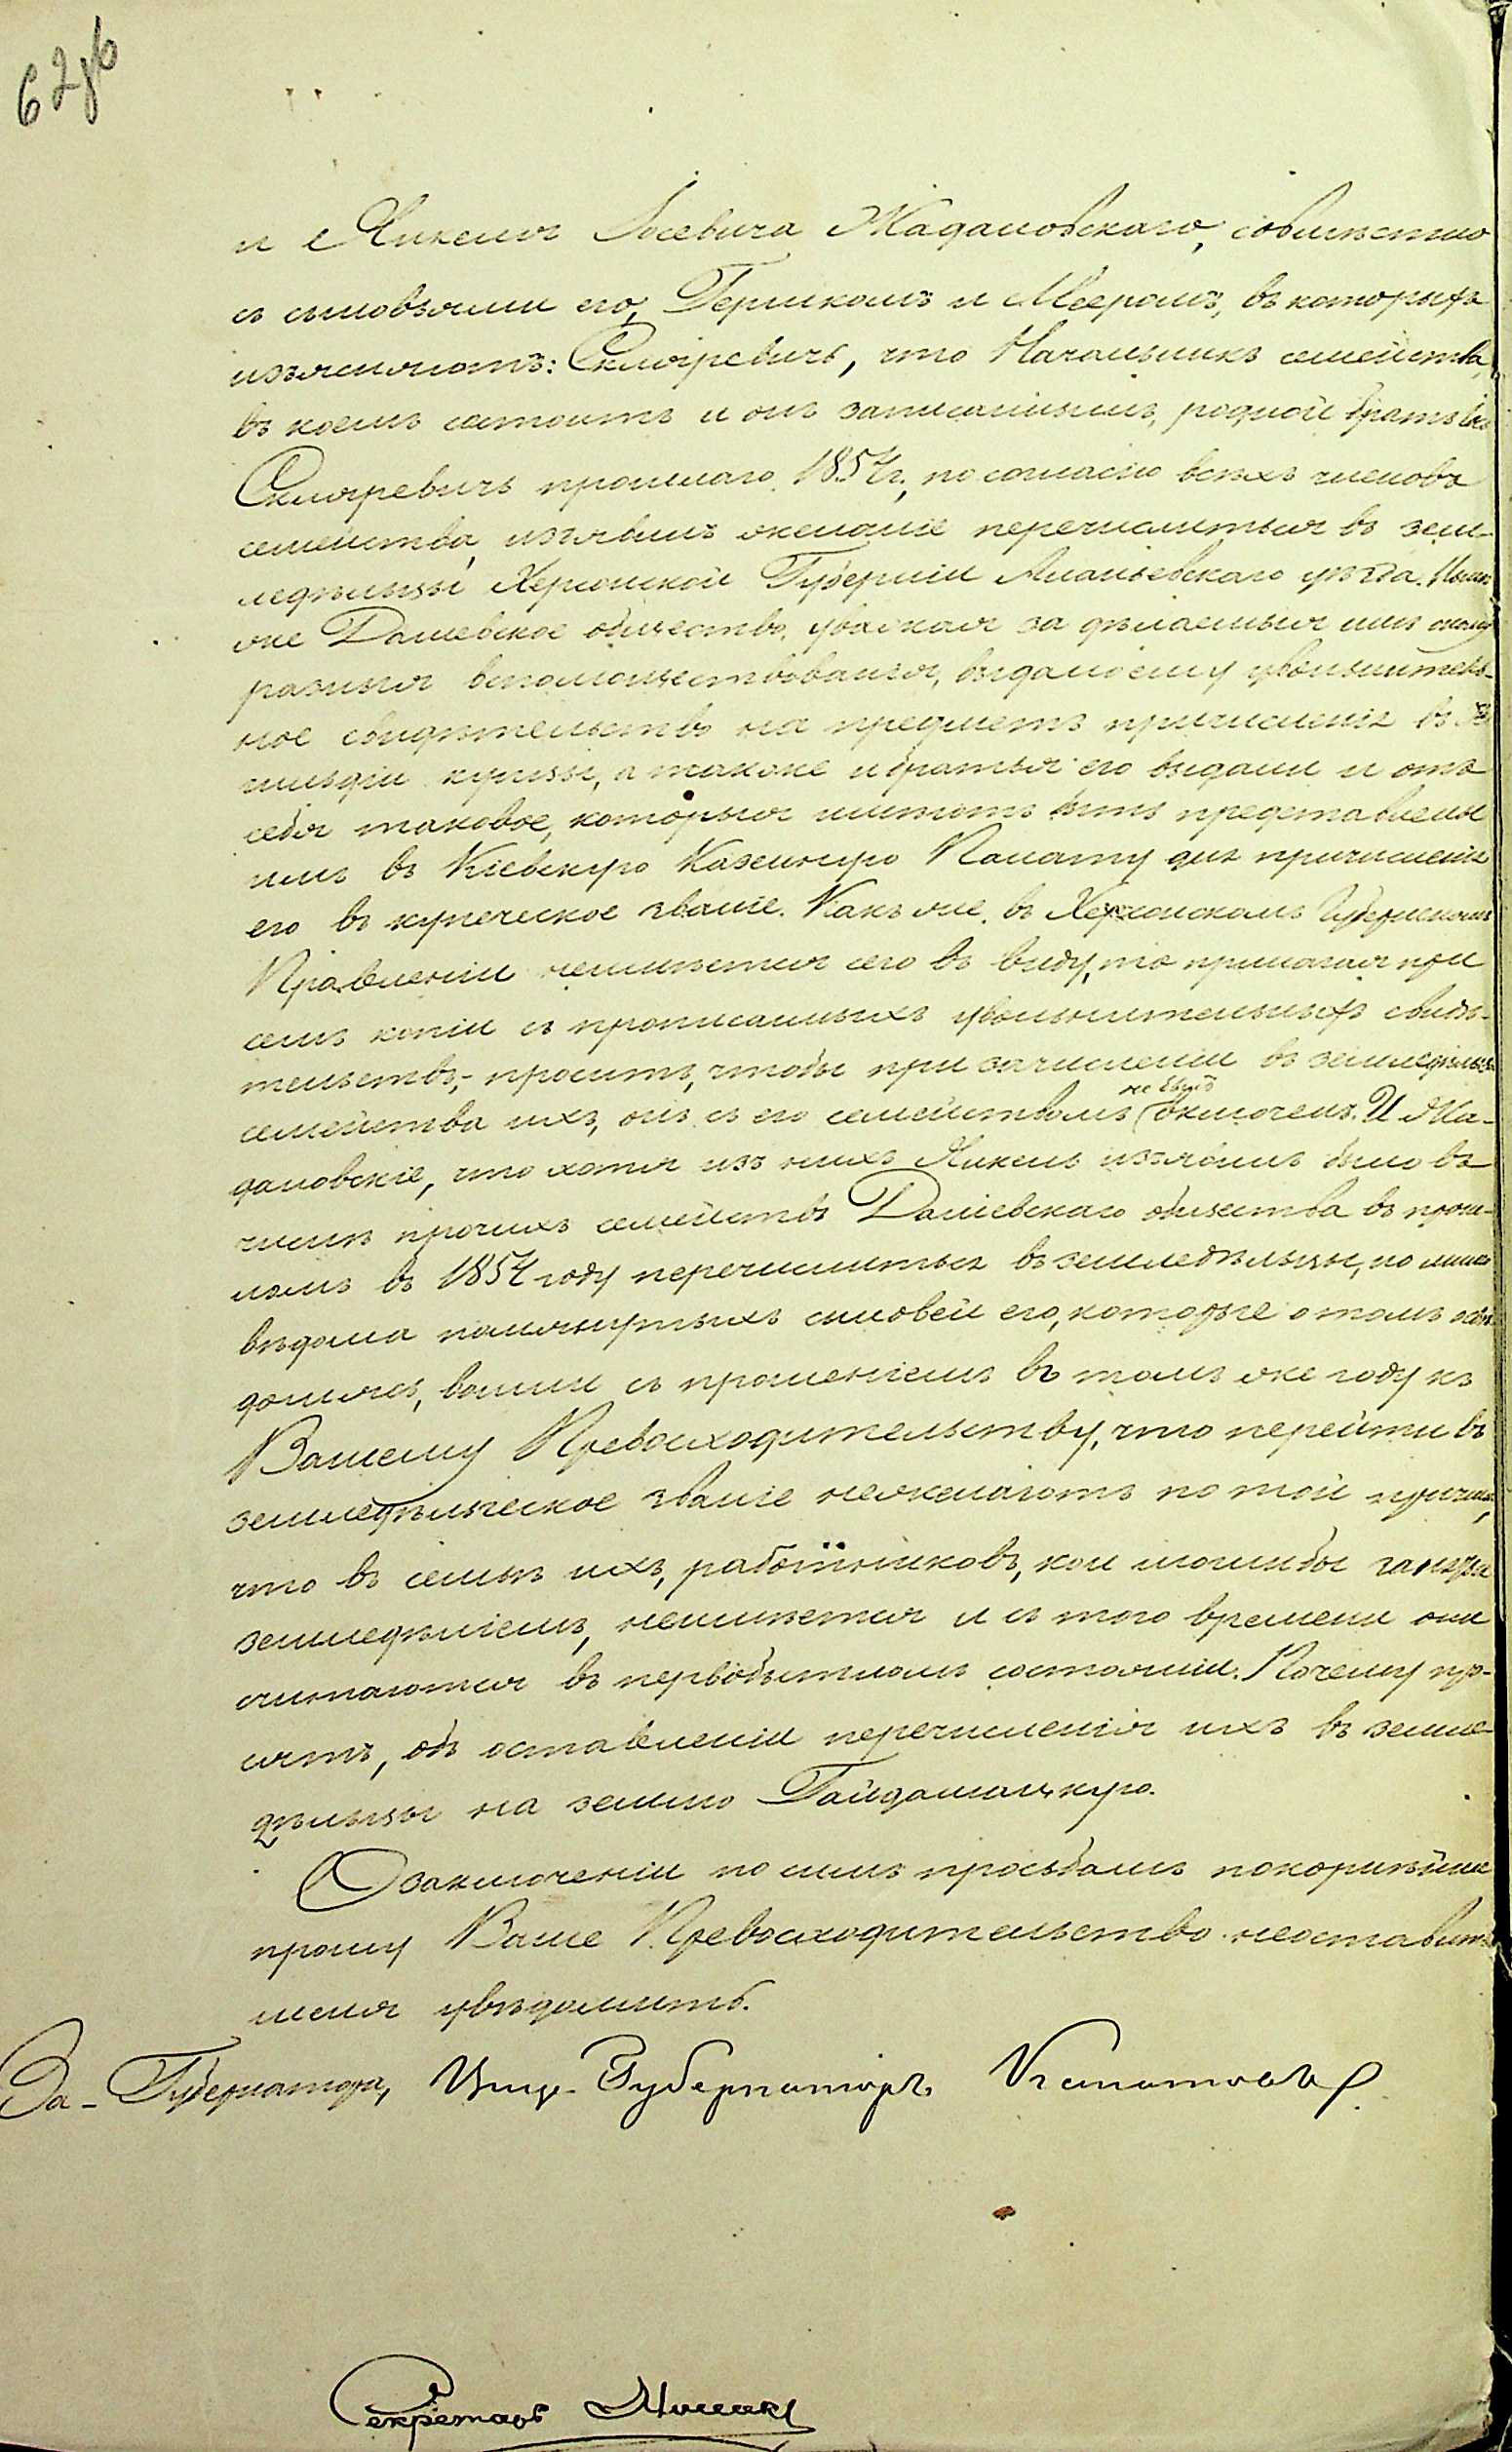 62об
и Янкеля Iосевича Жадановскаго, совмѣстно
съ сыновьями его, Гершкомъ и Мееромъ, въ которыхъ
изъясняютъ: Скляревичъ, что Начальникъ семейства,
въ коемъ состоитъ и онъ записаннымъ, родной братъ
Скляревичъ прошлаго 1854 г., по согласію всѣхъ членовъ
семейства, изъявилъ желаніе перечислиться въ зем-
ледѣльцы Херсонской Губерніи Ананьевскаго уѣзда. Нынѣ
же Дашевское общество, уважая за дѣлаемыя имъ оному
разныя вспомоществованія, выдало ему увольнитель-
ное свидѣтельство на предметъ причисленія въ 3ю
гильдію купцы, а также и братья его выдали и отъ
себя таковое, которыя имѣютъ быть представлены
имъ въ Кіевскую Казенную Палату для причисленія
его въ купеческое званіе. Какъ же въ Херсонскомъ Губернскомъ
Правленіи неимѣется сего въ виду, то прилагая при
семъ копіи съ прописанныхъ увольнительныхъ свидѣ-
тельствъ,- проситъ, чтобы при зачисленіи въ земледѣльцы
семейства ихъ, онъ съ его семействомъ не былъ включенъ. И Жа-
дановскіе, что хотя изъ нихъ Янкель изъявилъ было въ
числѣ прочихъ семействъ Дашевскаго общества въ прош-
ломъ въ 1854 году перечислиться въ земледѣльцы, но мимо
вѣдома помянутыхъ сыновей его, которые о томъ освѣ-
домясь, вошли съ прошеніемъ въ томъ же году къ
Вашему Превосходительству, что перейти въ
земледѣльческое званіе нежелаютъ по той причинѣ,
что въ семьѣ ихъ, работниковъ, кои моглибы заняться
земледѣліемъ, неимѣется и съ того времени они
считаются въ первобытномъ состояніи. Почему про-
сятъ, объ оставленіи перечисленія ихъ въ земле-
дѣльцы на землю Гайдамацкую.
О заключеніи по симъ просьбамъ покорнѣйше
прошу Ваше Превосходительство неоставить
меня увѣдомить.
За - Губернатора, Вице-Губернаторъ
Секретарь